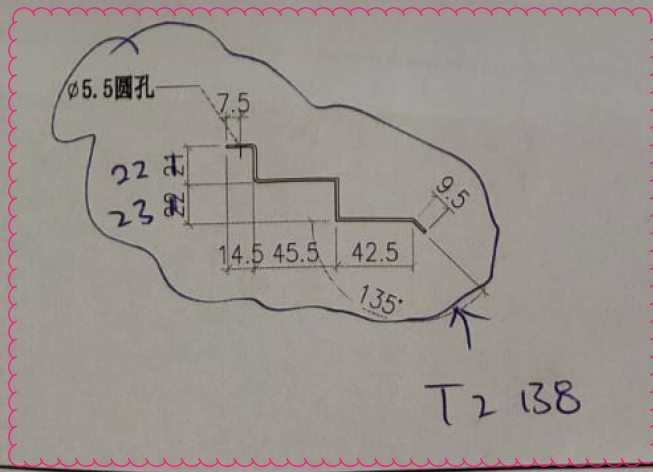 ø5.5圆孔
7.5
22 21
23 22
9.5
14.5 45.5 42.5
135°
T2 138